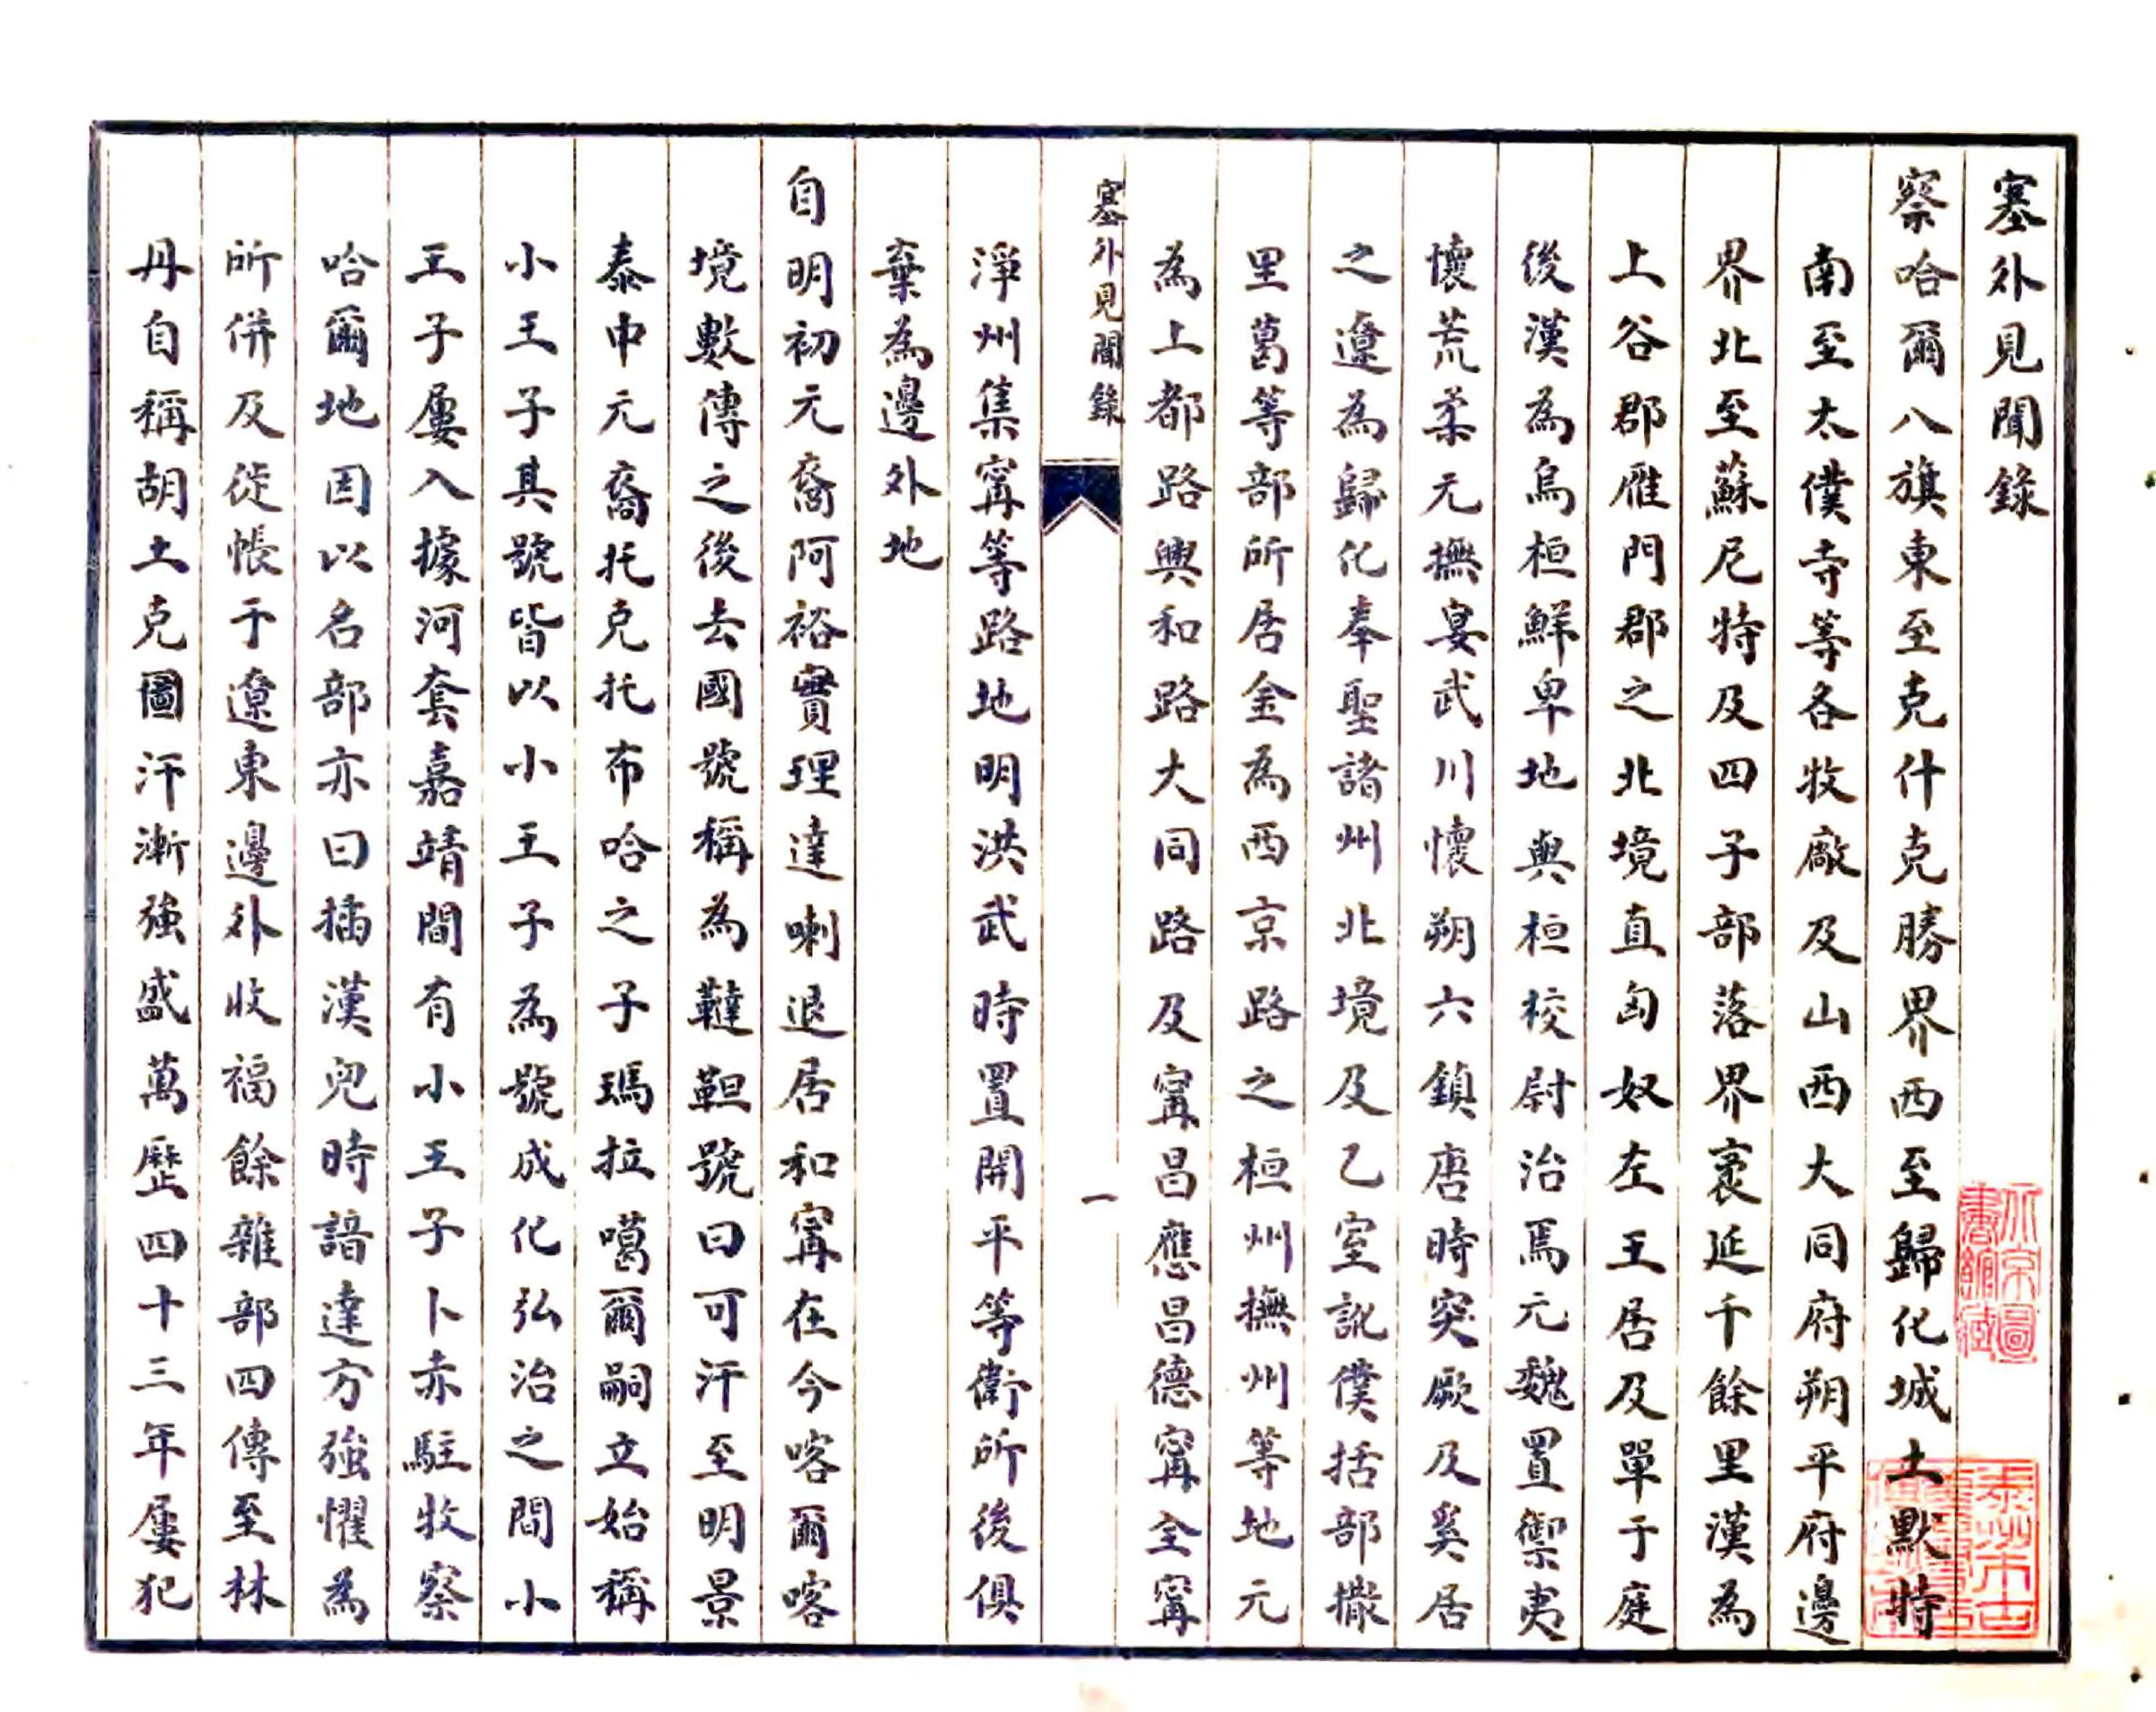 塞外見聞錄
察哈爾八旗東至克什克勝界西至歸化城土默特
南至太僕寺等各牧廠及山西大同府朔平府邊
界北至蘇尼特及四子部落界袤延千餘里漢為
上谷郡雁門郡之北境直匈奴左王居及單于庭
後漢為烏桓鮮卑地與桓校尉治焉元魏置禦夷
懷荒柔元撫宴武川懷朔六鎮唐時突厥及奚居
之遼為歸化奉聖諸州北境及乙室訛僕括部撒
里葛等部所居金為西京路之桓州撫州等地元
為上都路興和路大同路及甯昌應昌德甯全甯
塞外見聞錄
一
淨州集甯等路地明洪武時置開平等衛所後俱
棄為邊外地
自明初元裔阿裕實理達喇退居和甯在今喀爾喀
境數傳之後去國號稱為韃靼號曰可汗至明景
泰中元裔托克托布哈之子瑪拉噶爾嗣立始稱
小王子其號皆以小王子為號成化弘治之間小
王子屢入據河套嘉靖間有小王子卜赤駐牧察
哈爾地因以名部亦曰插漢兒時諳達方強懼為
所併及徙帳于遼東邊外收福餘雜部四傳至林
丹自稱胡土克圖汗漸強盛萬歷四十三年屢犯